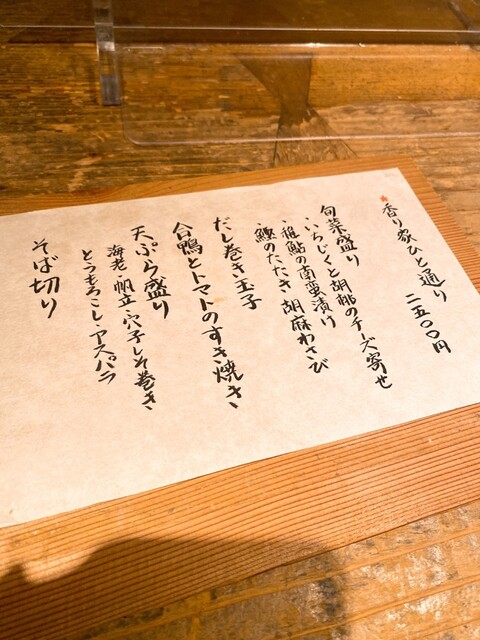 香り家ひと通り 二五〇〇円
旬菜盛り
・いちじくと胡桃のチーズ寄せ
・稚鮎の南蛮漬け
・鰹のたたき 胡麻わさび
だし巻き玉子
合鴨とトマトのすき焼き
天ぷら盛り
海老・帆立・穴子しそ巻き
とうもろこし・アスパラ
そば切り